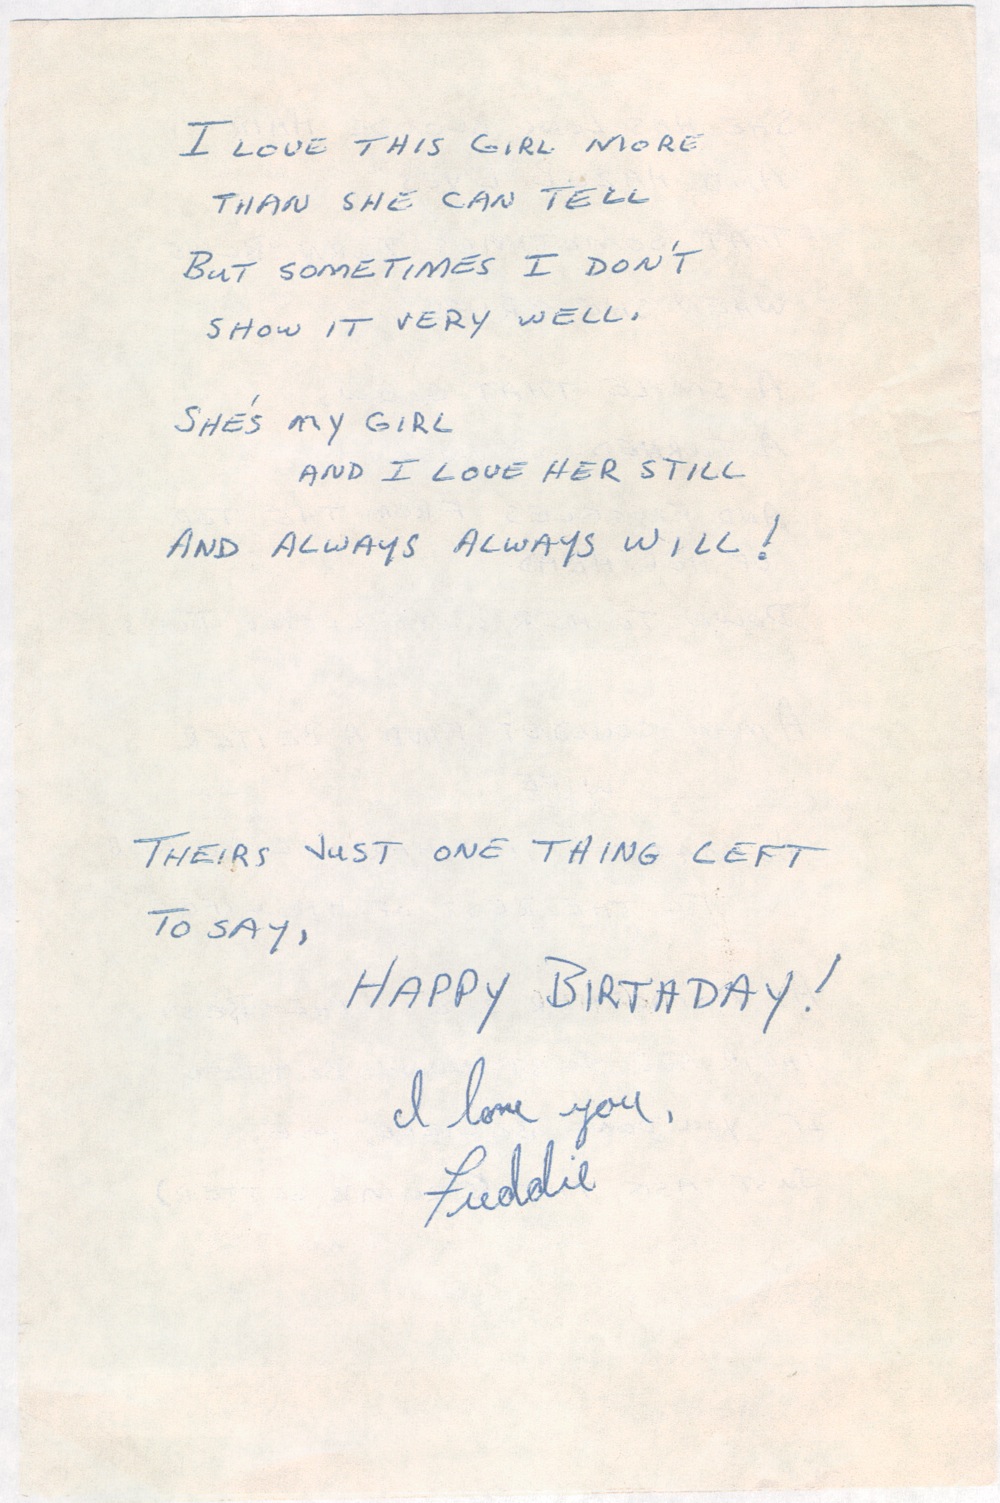 I LOVE THIS GIRL MORE
THAN SHE CAN TELL
BUT SOMETIMES I DON'T
SHOW IT VERY WELL.
SHE'S MY GIRL
AND I LOVE HER STILL
AND ALWAYS ALWAYS WILL!
THEIRS JUST ONE THING LEFT
TO SAY,
HAPPY BIRTHDAY!
I love you,
Freddie